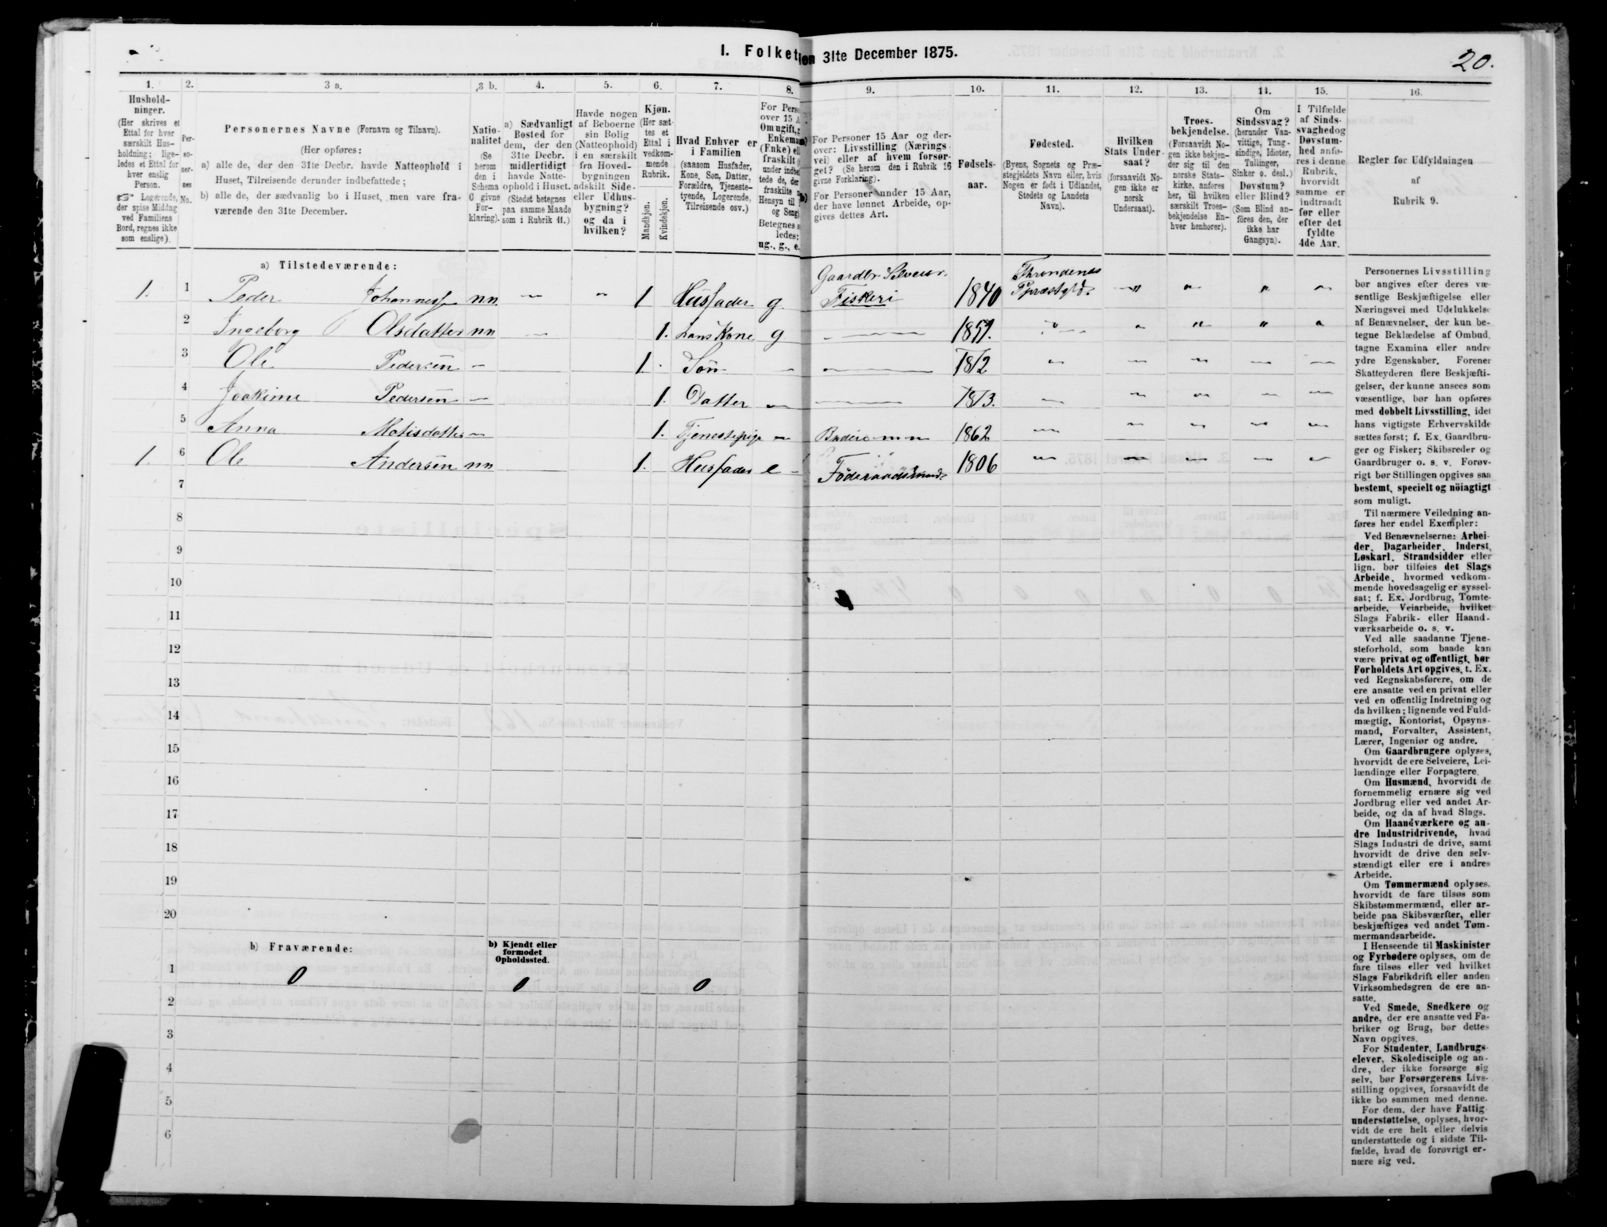 I. Folketællingen 31te December 1875.
20.
1. 2. 3 a. 3 b. 4. 5. 6. 7. 8. 9. 10. 11. 12. 13. 14. 15. 16.
Hushold-
ninger.
(Her skrives et
Ettal for hver
særskilt Hus-
holdning; lige-
ledes et Ettal for
hver enslig
Person.
☞ Logerende,
der spise Middag
ved Familiens
Bord, regnes ikke
som enslige).
Per-
so-
ner-
nes
No.
Personernes Navne (Fornavn og Tilnavn).
(Her opføres:
a) alle de, der den 31te Decbr. havde Natteophold i
Huset, Tilreisende derunder indbefattede;
b) alle de, der sædvanlig bo i Huset, men vare fra-
værende den 31te December.
Natio-
nalitet
(Se
herom
den i
Schema
O givne
For-
klaring).
a) Sædvanligt
Bosted for
dem, der den
31te Decbr.
midlertidigt
havde Natte-
ophold i Huset.
(Stedet betegnes
paa samme Maade
som i Rubrik 11.)
Havde nogen
af Beboerne
sin Bolig
(Natteophold)
i en særskilt
fra Hoved-
bygningen
adskilt Side-
eller Udhus-
bygning?
og da i
hvilken?
Kjøn.
(Her sæt-
tes et
Ettal i
vedkom-
mende
Rubrik.
Mandkjøn.
Kvindekjøn.
Hvad Enhver er
i Familien
(saasom Husfader,
Kone, Søn, Datter,
Forældre, Tjeneste-
tyende, Logerende,
Tilreisende osv.)
For Pers
over 15 A
Om ugift, g
Enkema
(Fnke) el
fraskilt
under indbe
tede de, der
fraskilte
Hensyn til
og Seng
Betegnes s
ledes:
ug., g., e.
For Personer 15 Aar og der-
over: Livsstilling (Nærings-
vei) eller af hvem forsør-
get? (Se herom den i Rubrik 16
givne Forklaring).
For Personer under 15 Aar,
der have lønnet Arbeide, op-
gives dettes Art.
Fødsels-
aar.
Fødested.
(Byens, Sognets og Præ-
stegjeldets Navn eller, hvis
Nogen er født i Udlandet,
Stedets og Landets
Navn).
Hvilken
Stats Under-
saat?
(forsaavidt No-
gen ikke er
norsk
Undersaat).
Troes-
bekjendelse.
(Forsaavidt No-
gen ikke bekjen-
der sig til den
norske Stats-
kirke, anføres
her, til hvilken
særskilt Troes-
bekjendelse En-
hver henhører).
Om
Sindssvag?
(herunder Van-
vittige, Tung-
sindige, Idioter,
Tullinger,
Sinker o. desl.)
Døvstum?
eller Blind?
(Som Blind an-
føres den, der
ikke har
Gangsyn).
I Tilfælde
af Sinds-
svaghed og
Døvstum-
hed anfø-
res i denne
Rubrik,
hvorvidt
samme er
indtraadt
før eller
efter det
fyldte
4de Aar.
Regler før Udfyldningen
af
Rubrik 9.
a) Tilstedeværende:
1. 1 Peder Johannes nn 1 Husfader g Gaardbr. Selveier Fiskeri 1840 Throndenes Præstgjd.
2 Ingeborg Olsdatter nn 1. hans Kone g 1851.
3 Ole Pedersen 1. Søn 1872
4 Joakime Pedersen 1. Datter 1873.
5 Anna 1. Tjenestepige 1862
1. 6 Ole Andersen nn 1. Husfader e Føderaadsmand 1806
7
8
9
10
11
12
13
14
15
16
17
18
19
20
b) Fraværende:
b) Kjendt eller
formodet
Opholdssted.
1 0 0 0
2
3
4
5
6
Personernes Livsstilling
bør angives efter deres væ-
sentlige Beskjæftigelse eller
Næringsvei med Udelukkelse
af Benævnelser, der kun be-
tegne Beklædelse af Ombud,
tagne Examina eller andre
ydre Egenskaber. Forener
Skatteyderen flere Beskjæfti-
gelser, der kunne ansees som
væsentlige, bør han opføres
med dobbelt Livsstilling, idet
hans vigtigste Erhvervskilde
sættes først; f. Ex. Gaardbru-
ger og Fisker; Skibsreder og
Gaardbruger o. s. v. Forøv-
rigt bør Stillingen opgives saa
bestemt, specielt og nöiagtigt
som muligt.
Til nærmere Veiledning an-
føres her endel Exempler:
Ved Benævnelserne: Arbei-
der, Dagarbeider, Inderst,
Løskarl, Strandsidder eller
lign. bør tilføies det Slags
Arbeide, hvormed vedkom-
mende hovedsagelig er syssel-
sat; f. Ex. Jordbrug, Tomte-
arbeide, Veiarbeide, hvilket
Slags Fabrik- eller Haand-
værksarbeide o. s. v.
Ved alle saadanne Tjene-
steforhold, som baade kan
være privat og offentligt, bør
Forholdets Art opgives, t. Ex.
ved Regnskabsførere, om de
ere ansatte ved en privat eller
ved en offentlig Indretning og
da hvilken; lignende ved Fuld-
mægtig, Kontorist, Opsyns-
mand, Forvalter, Assistent,
Lærer, Ingeniør og andre.
Om Gaardbrugere oplyses,
hvorvidt de ere Selveiere, Lei-
lændinge eller Forpagtere.
Om Husmænd, hvorvidt de
fornemmelig ernære sig ved
Jordbrug eller ved andet Ar-
beide, og da af hvad Slags.
Om Haandværkere og an-
dre Industridrivende, hvad
Slags Industri de drive, samt
hvorvidt de drive den selv-
stændigt eller ere i andres
Arbeide.
Om Tømmermænd oplyses,
hvorvidt de fare tilsøs som
Skibstømmermænd, eller ar-
beide paa Skibsværfter, eller
beskjæftiges ved andet Tøm-
mermandsarbeide.
I Henseende til Maskinister
og Fyrbødere oplyses, om de
fare tilsøs eller ved hvilket
Slags Fabrikdrift eller anden
Virksomhedsgren de ere an-
satte.
Ved Smede, Snedkere og
andre, der ere ansatte ved Fa-
briker og Brug, bør dettes
Navn opgives.
For Studenter, Landbrugs-
elever, Skoledisciple og an-
dre, der ikke forsørge sig
selv, bør Forsørgerens Livs-
stilling opgives, forsaavidt de
ikke bo sammen med denne.
For dem, der have Fattig-
understøttelse, oplyses, hvor-
vidt de ere helt eller delvis
understøttede og i sidste Til-
fælde, hvad de forøvrigt er-
nære sig ved.